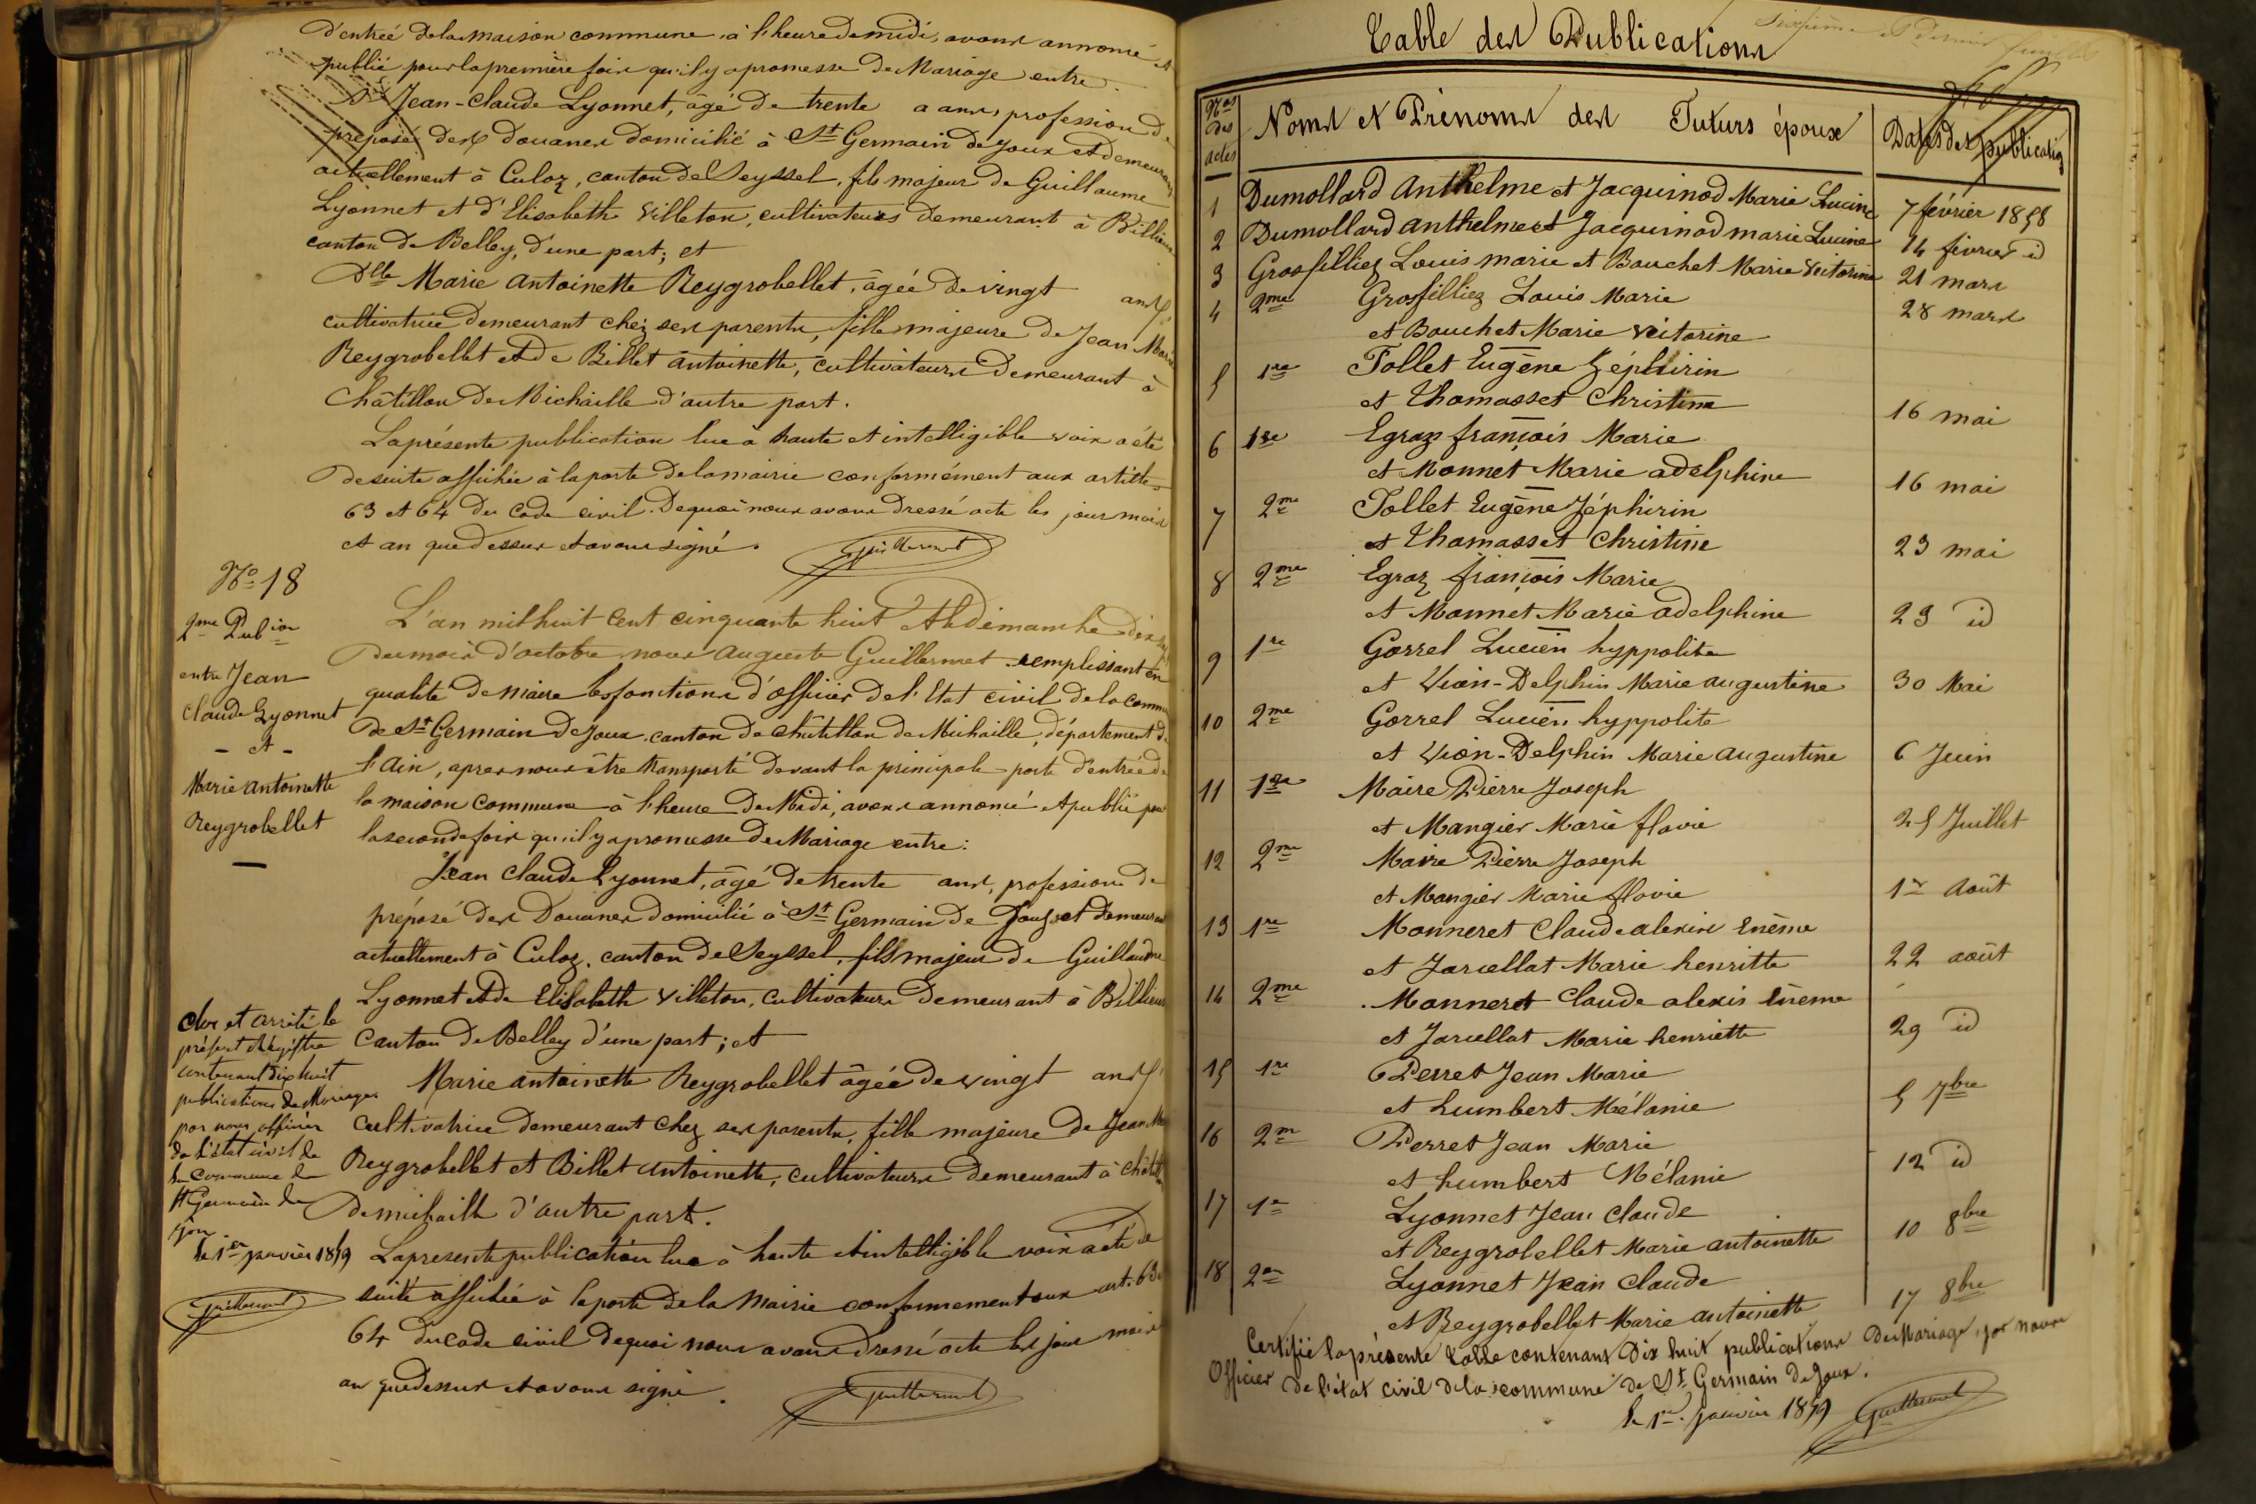 d'entrée de la maison commune à l'heure de midi, avons annoncé et
publié pour la première fois qu'il y a promesse de Mariage entre
Sr Jean-Claude Lyonnet, âgé de trente ans, profession de
préposé des Douanes domicilié à St Germain de Joux et demeurant
actuellement à Culoz, canton de Seyssel, fils majeur de Guillaume
Lyonnet et d'Elisabeth Villeton, cultivateurs demeurant à Billieu
canton de Belley, d'une part; et
Dlle Marie Antoinette Reygrobellet, âgée de vingt ans
cultivatrice demeurant chez ses parents, fille majeure de Jean Marie
Reygrobellet et de Billet Antoinette, cultivateurs demeurant à
Châtillon de Michaille d'autre part.
La présente publication lue à haute et intelligible voix a été
de suite affichée à la porte de la mairie conformément aux articles
63 et 64 du Code civil. De quoi nous avons dressé acte les jour mois
et an que dessus et avons signé.
Guillermet
No 18
2me Pubion
entre Jean
Claude Lyonnet
- et -
Marie Antoinette
Reygrobellet
L'an mil huit cent cinquante huit et le dimanche dix sept
du mois d'octobre nous Auguste Guillermet remplissant en
qualité de Maire les fonctions d'officier de l'Etat civil de la commune
de St Germain de Joux canton de Châtillon de Michaille, département de
l'Ain, après nous être transporté devant la principale porte d'entrée de
la maison commune à l'heure de Midi, avons annoncé et publié pour
la seconde fois qu'il y a promesse de Mariage entre:
Jean Claude Lyonnet, âgé de trente ans, profession de
préposé des Douanes domicilié à St Germain de Joux et demeurant
actuellement à Culoz, canton de Seyssel, fils majeur de Guillaume
Lyonnet et de Elisabeth Villeton, cultivateurs demeurant à Billieu
canton de Belley d'une part; et
Marie Antoinette Reygrobellet âgée de vingt ans
cultivatrice demeurant chez ses parents, fille majeure de Jean Marie
Reygrobellet et Billet Antoinette, cultivateurs demeurant à Châtillon
de Michaille d'autre part.
La présente publication lue à haute et intelligible voix a été de
suite affichée à la porte de la Mairie conformément aux art. 63 et
64 du code civil de quoi nous avons dressé acte les jour mois
an que dessus et avons signé.
Guillermet
Clos et arrêté le
présent Régistre
contenant dix huit
publications de Mariages
par nous officier
de l'état civil de
la Commune de
St Germain de
Joux
le 1er janvier 1859
Guillermet
Sixième et Dernier feuillet
Table des Publications
Nos des actes Noms et Prénoms des Futurs époux Dates des publications
1 Dumollard Anthelme et Jacquinod Marie Lucine 7 février 1858
2 Dumollard Anthelme et Jacquinod Marie Lucine 14 février id
3 Grosfilliez Louis Marie et Bouchet Marie Victorine 21 mars
4 2me Grosfilliez Louis Marie
et Bouchet Marie Victorine 28 mars
5 1re Tollet Eugène Zéphirin
et Thomasset Christine 16 mai
6 1re Egraz françois Marie
et Monnet Marie adelphine 16 mai
7 2me Tollet Eugène Zéphirin
et Thomasset Christine 23 mai
8 2me Egraz françois Marie
et Monnet Marie adelphine 23 id
9 1re Gorrel Lucien hyppolite
et Vion-Delphin Marie augustine 30 Mai
10 2me Gorrel Lucien hyppolite
et Vion-Delphin Marie augustine 6 Juin
11 1re Maire Pierre Joseph
et Mangier Marie flavie 25 Juillet
12 2me Maire Pierre Joseph
et Mangier Marie flavie 1er Août
13 1re Monneret Claude alexis Enème
et Jarcellat Marie henritte 22 août
14 2me Monneret Claude alexis Enème
et Jarcellat Marie henriette 29 id
15 1re Perret Jean Marie
et humbert Mélanie 5 7bre
16 2me Perret Jean Marie
et humbert Mélanie 12 id
17 1re Lyonnet Jean Claude
et Reygrobellet Marie antoinette 10 8bre
18 2me Lyonnet Jean Claude
et Reygrobellet Marie antoinette 17 8bre
Certifié la présente table contenant dix huit publications de Mariage, par nous
Officier de l'état civil de la commune de St Germain de Joux.
le 1er Janvier 1859
Guillermet